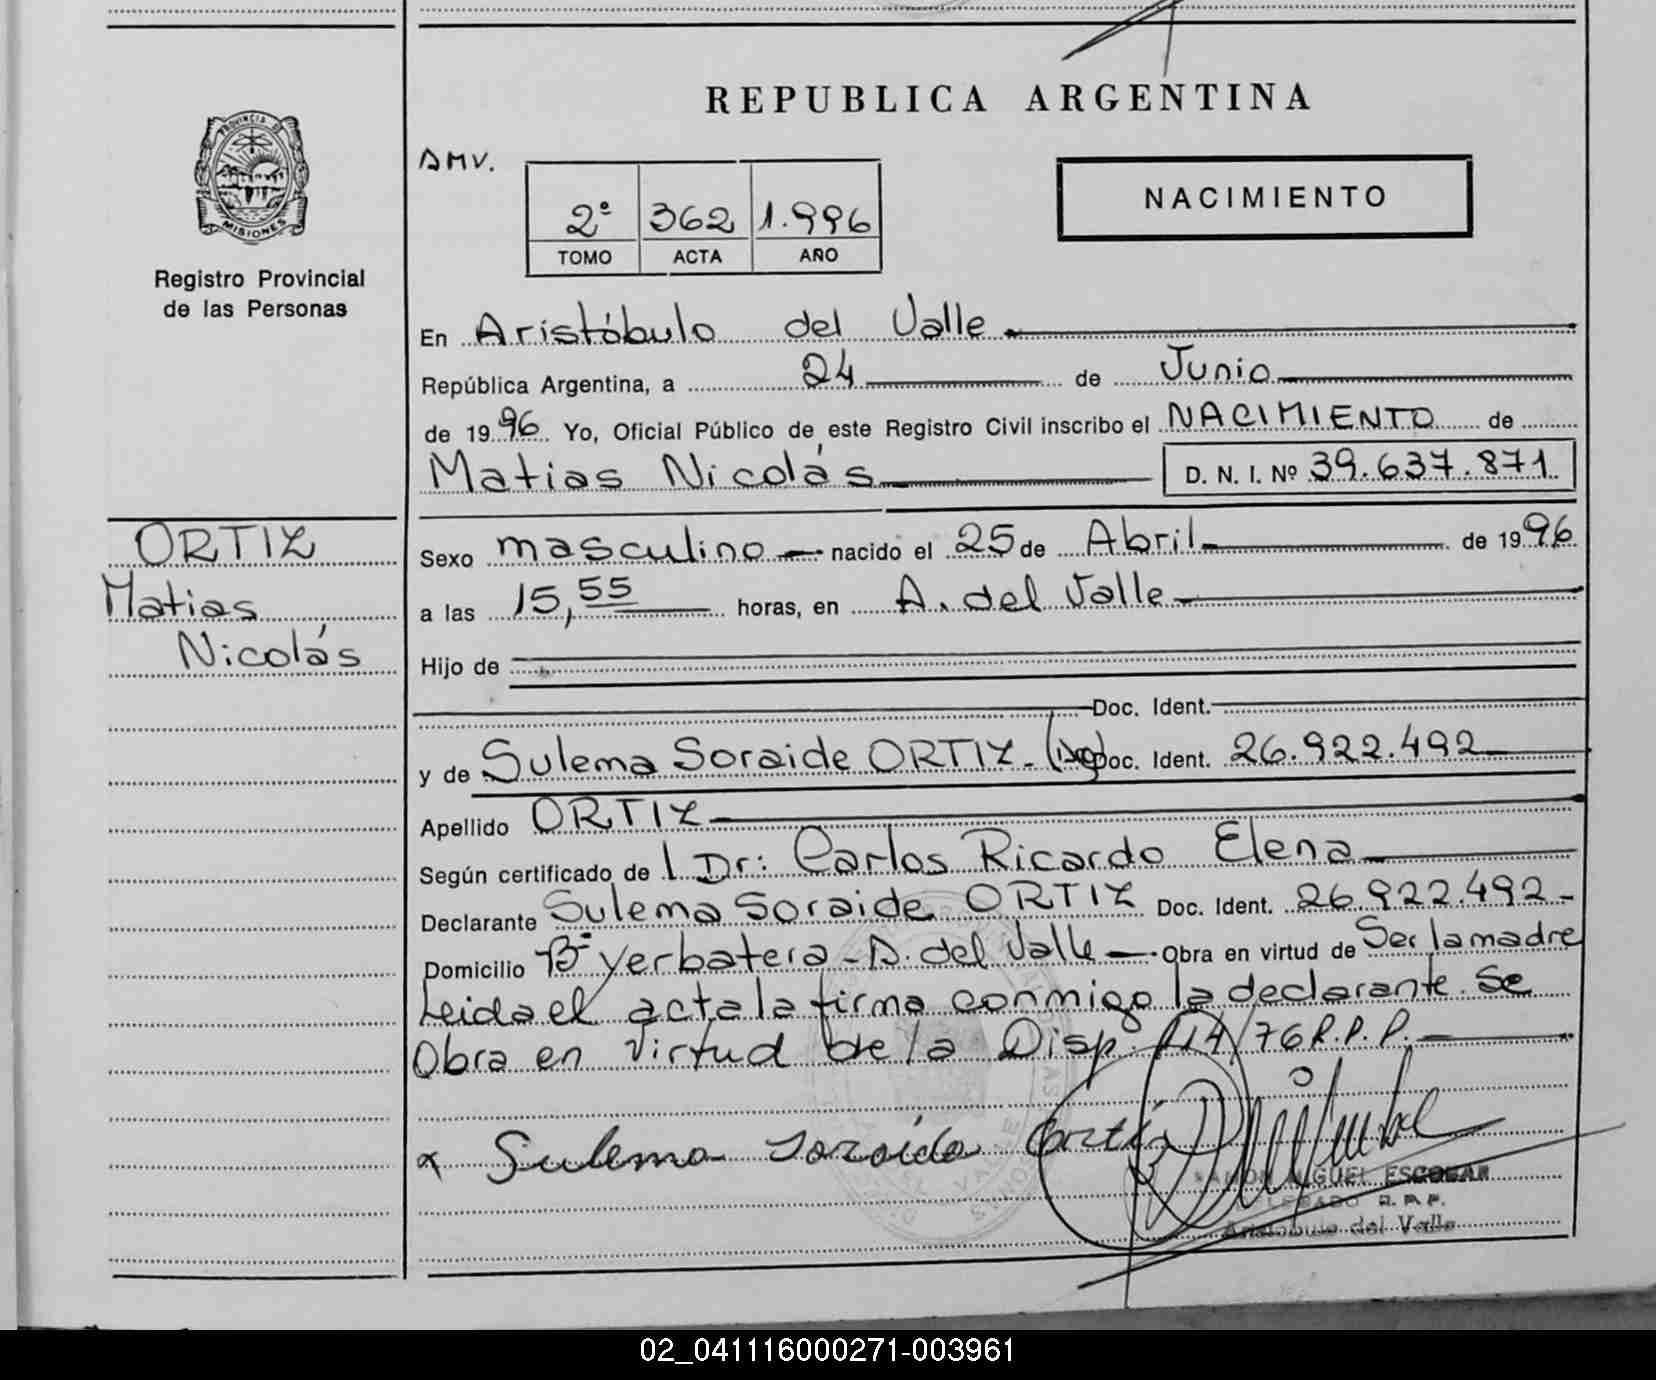 REPUBLICA ARGENTINA
PROVINCIA DE
MISIONES
Registro Provincial
de las Personas
AMV.
2º 362 1.996
TOMO ACTA AÑO
NACIMIENTO
En Aristóbulo del Valle
República Argentina, a 24 de Junio
de 1996 Yo, Oficial Público de este Registro Civil inscribo el NACIMIENTO de
Matias Nicolás D. N. I. Nº 39.637.871.
ORTIZ
Matias
Nicolás
Sexo masculino nacido el 25 de Abril de 1996
a las 15,55 horas, en A. del Valle
Hijo de
Doc. Ident.
y de Sulema Soraide ORTIZ - Doc. Ident. 26.922.492
Apellido ORTIZ
Según certificado de l Dr: Carlos Ricardo Elena
Declarante Sulema Soraide ORTIZ Doc. Ident. 26.922.492-
Domicilio Bº yerbatera - A. del Valle - Obra en virtud de Ser la madre
Leida el acta la firma conmigo la declarante. Se
Obra en virtud de la Disp. 114/76 R.P.P.
Sulema Soraide Ortiz
MIGUEL ESCOBAR
R.P.P.
Aristobulo del Valle
02_041116000271-003961